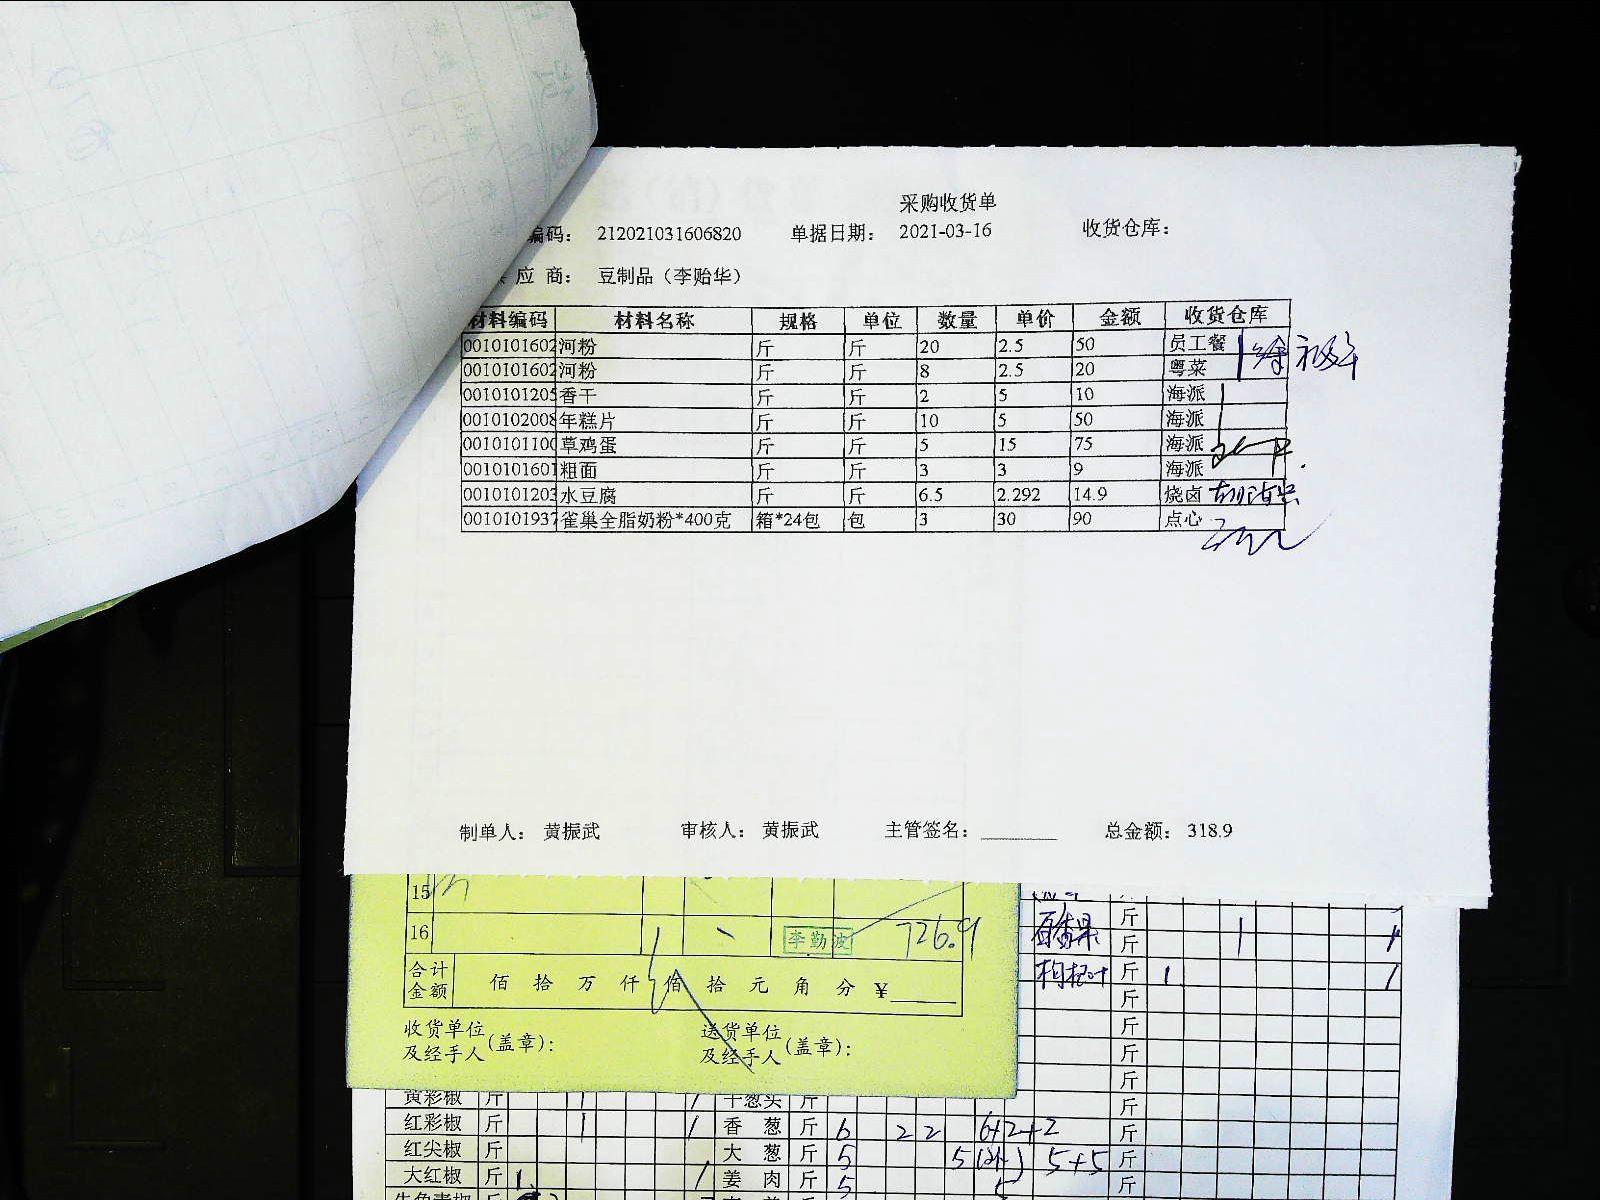 采购收货单
编码： 212021031606820 单据日期： 2021-03-16 收货仓库：
应 商： 豆制品（李贻华）
材料编码 材料名称 规格 单位 数量 单价 金额 收货仓库
0010101602 河粉 斤 斤 20 2.5 50 员工餐
0010101602 河粉 斤 斤 8 2.5 20 粤菜
0010101205 香干 斤 斤 2 5 10 海派
0010102008 年糕片 斤 斤 10 5 50 海派
0010101100 草鸡蛋 斤 斤 5 15 75 海派
0010101601 粗面 斤 斤 3 3 9 海派
0010101203 水豆腐 斤 斤 6.5 2.292 14.9 烧卤
0010101937 雀巢全脂奶粉*400克 箱*24包 包 3 30 90 点心
制单人： 黄振武 审核人： 黄振武 主管签名： 总金额： 318.9
15
斤
16 李勤波 726.9
百香果 斤 1 1
枸杞叶 斤 1 1
合计金额 佰 拾 万 仟 佰 拾 元 角 分 ¥
斤
斤
收货单位及经手人(盖章)： 送货单位及经手人(盖章)：
斤
斤
黄彩椒 斤 1 1 干葱头 斤 斤
红彩椒 斤 1 1 香葱 斤 6 2 2 6+2+2 斤
红尖椒 斤 大葱 斤 5 5(补) 5+5 斤
大红椒 斤 1 1 姜肉 斤 5 5 斤
牛角青椒 斤